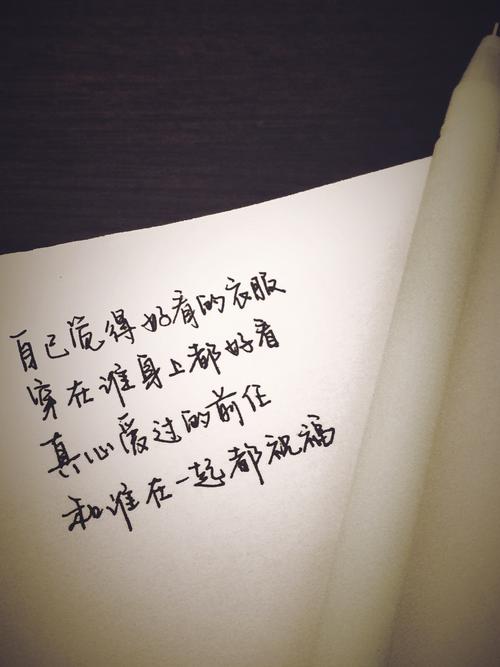 自己觉得好看的衣服
穿在谁身上都好看
真心爱过的前任
和谁在一起都祝福